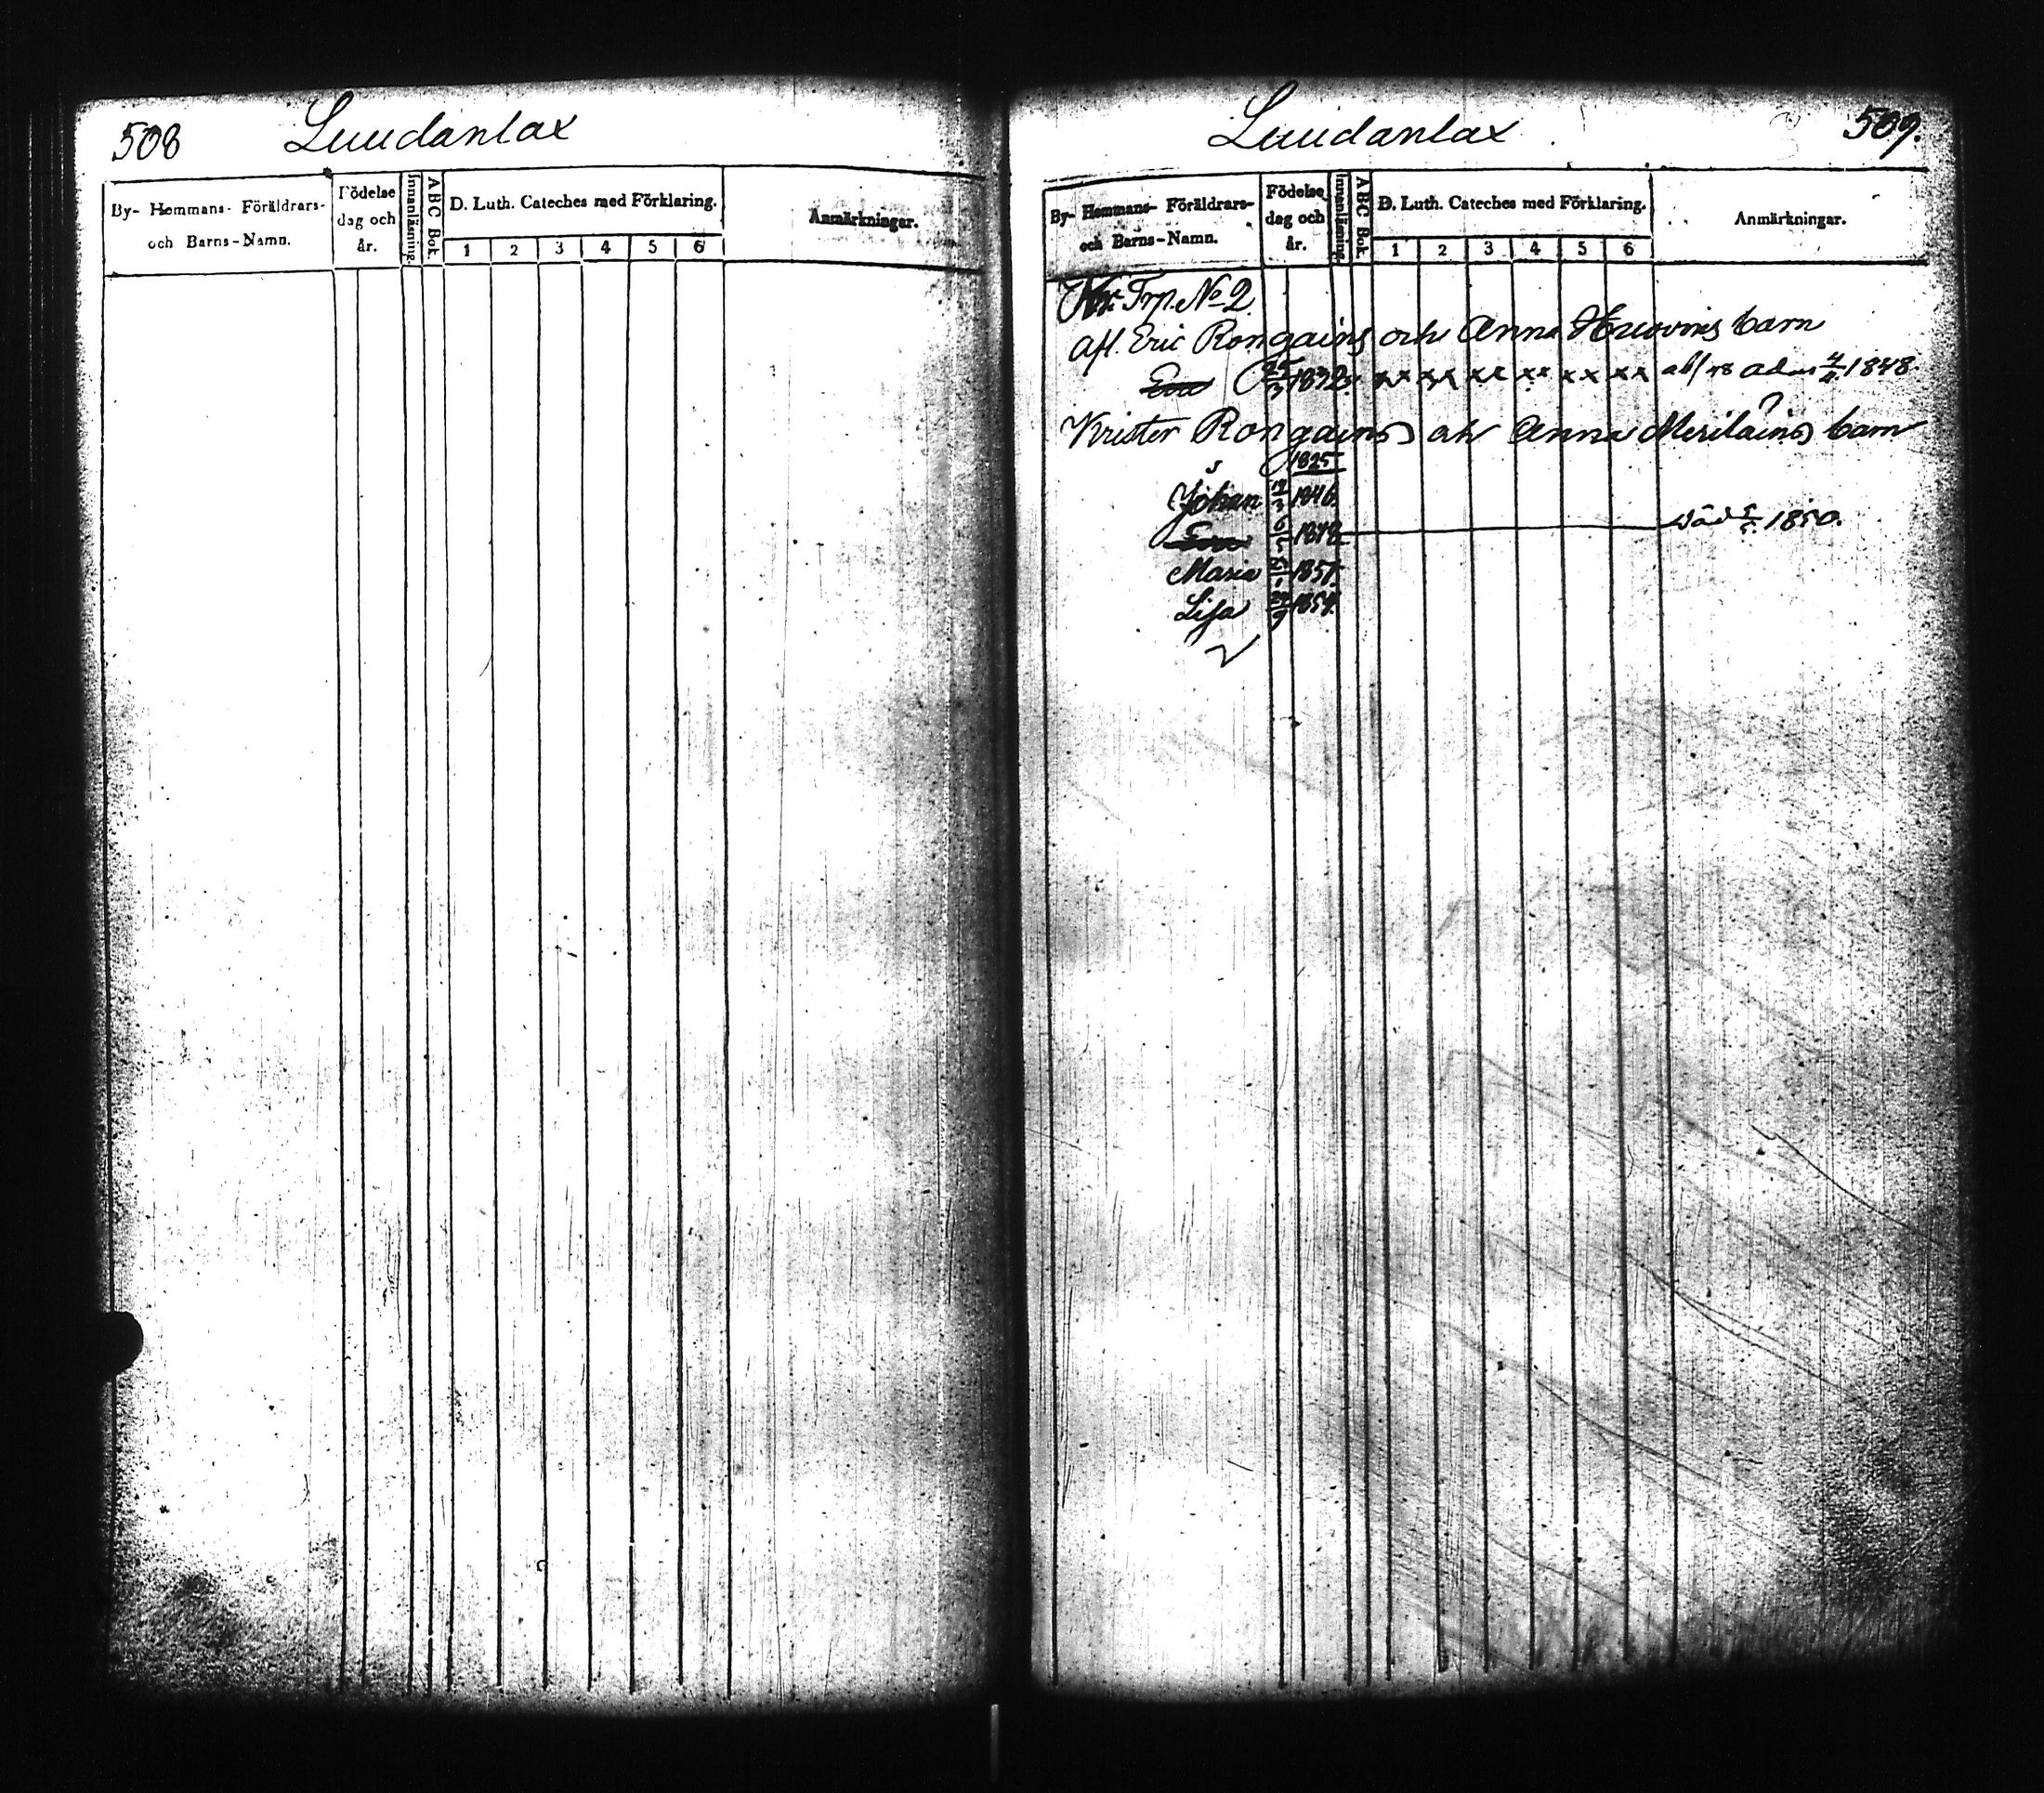 508 Luudanlax
By- Hemmans- Föräldrars-
och Barns-Namn.
Födelse
dag och
år.
Innanläsning.
ABC Bok.
D. Luth. Cateches med Förklaring.
1 2 3 4 5 6
Anmärkningar.
Luudanlax 509.
By- Hemmans- Föräldrars-
och Barns-Namn.
Födelse
dag och
år.
Innanläsning.
ABC Bok.
D. Luth. Cateches med Förklaring.
1 2 3 4 5 6
Anmärkningar.
Trp. No 2
afl. Eric Rongains och Anna Huovins barn
Eva 1832 xx xx xx xx xx xx 1848.
Krister Rongains och Anna Meriläins barn
1825
Johan 1846.
Eva 1848 död 1850.
Maria 1851.
Lisa 1854.